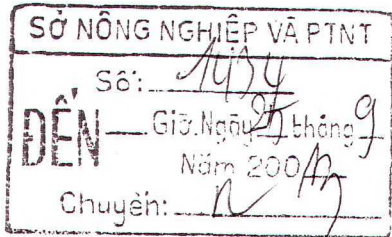 SỞ NÔNG NGHIỆP VÀ PTNT
Số: 1434
ĐẾN Giờ.Ngày 25 tháng 9
Năm 200
Chuyển: